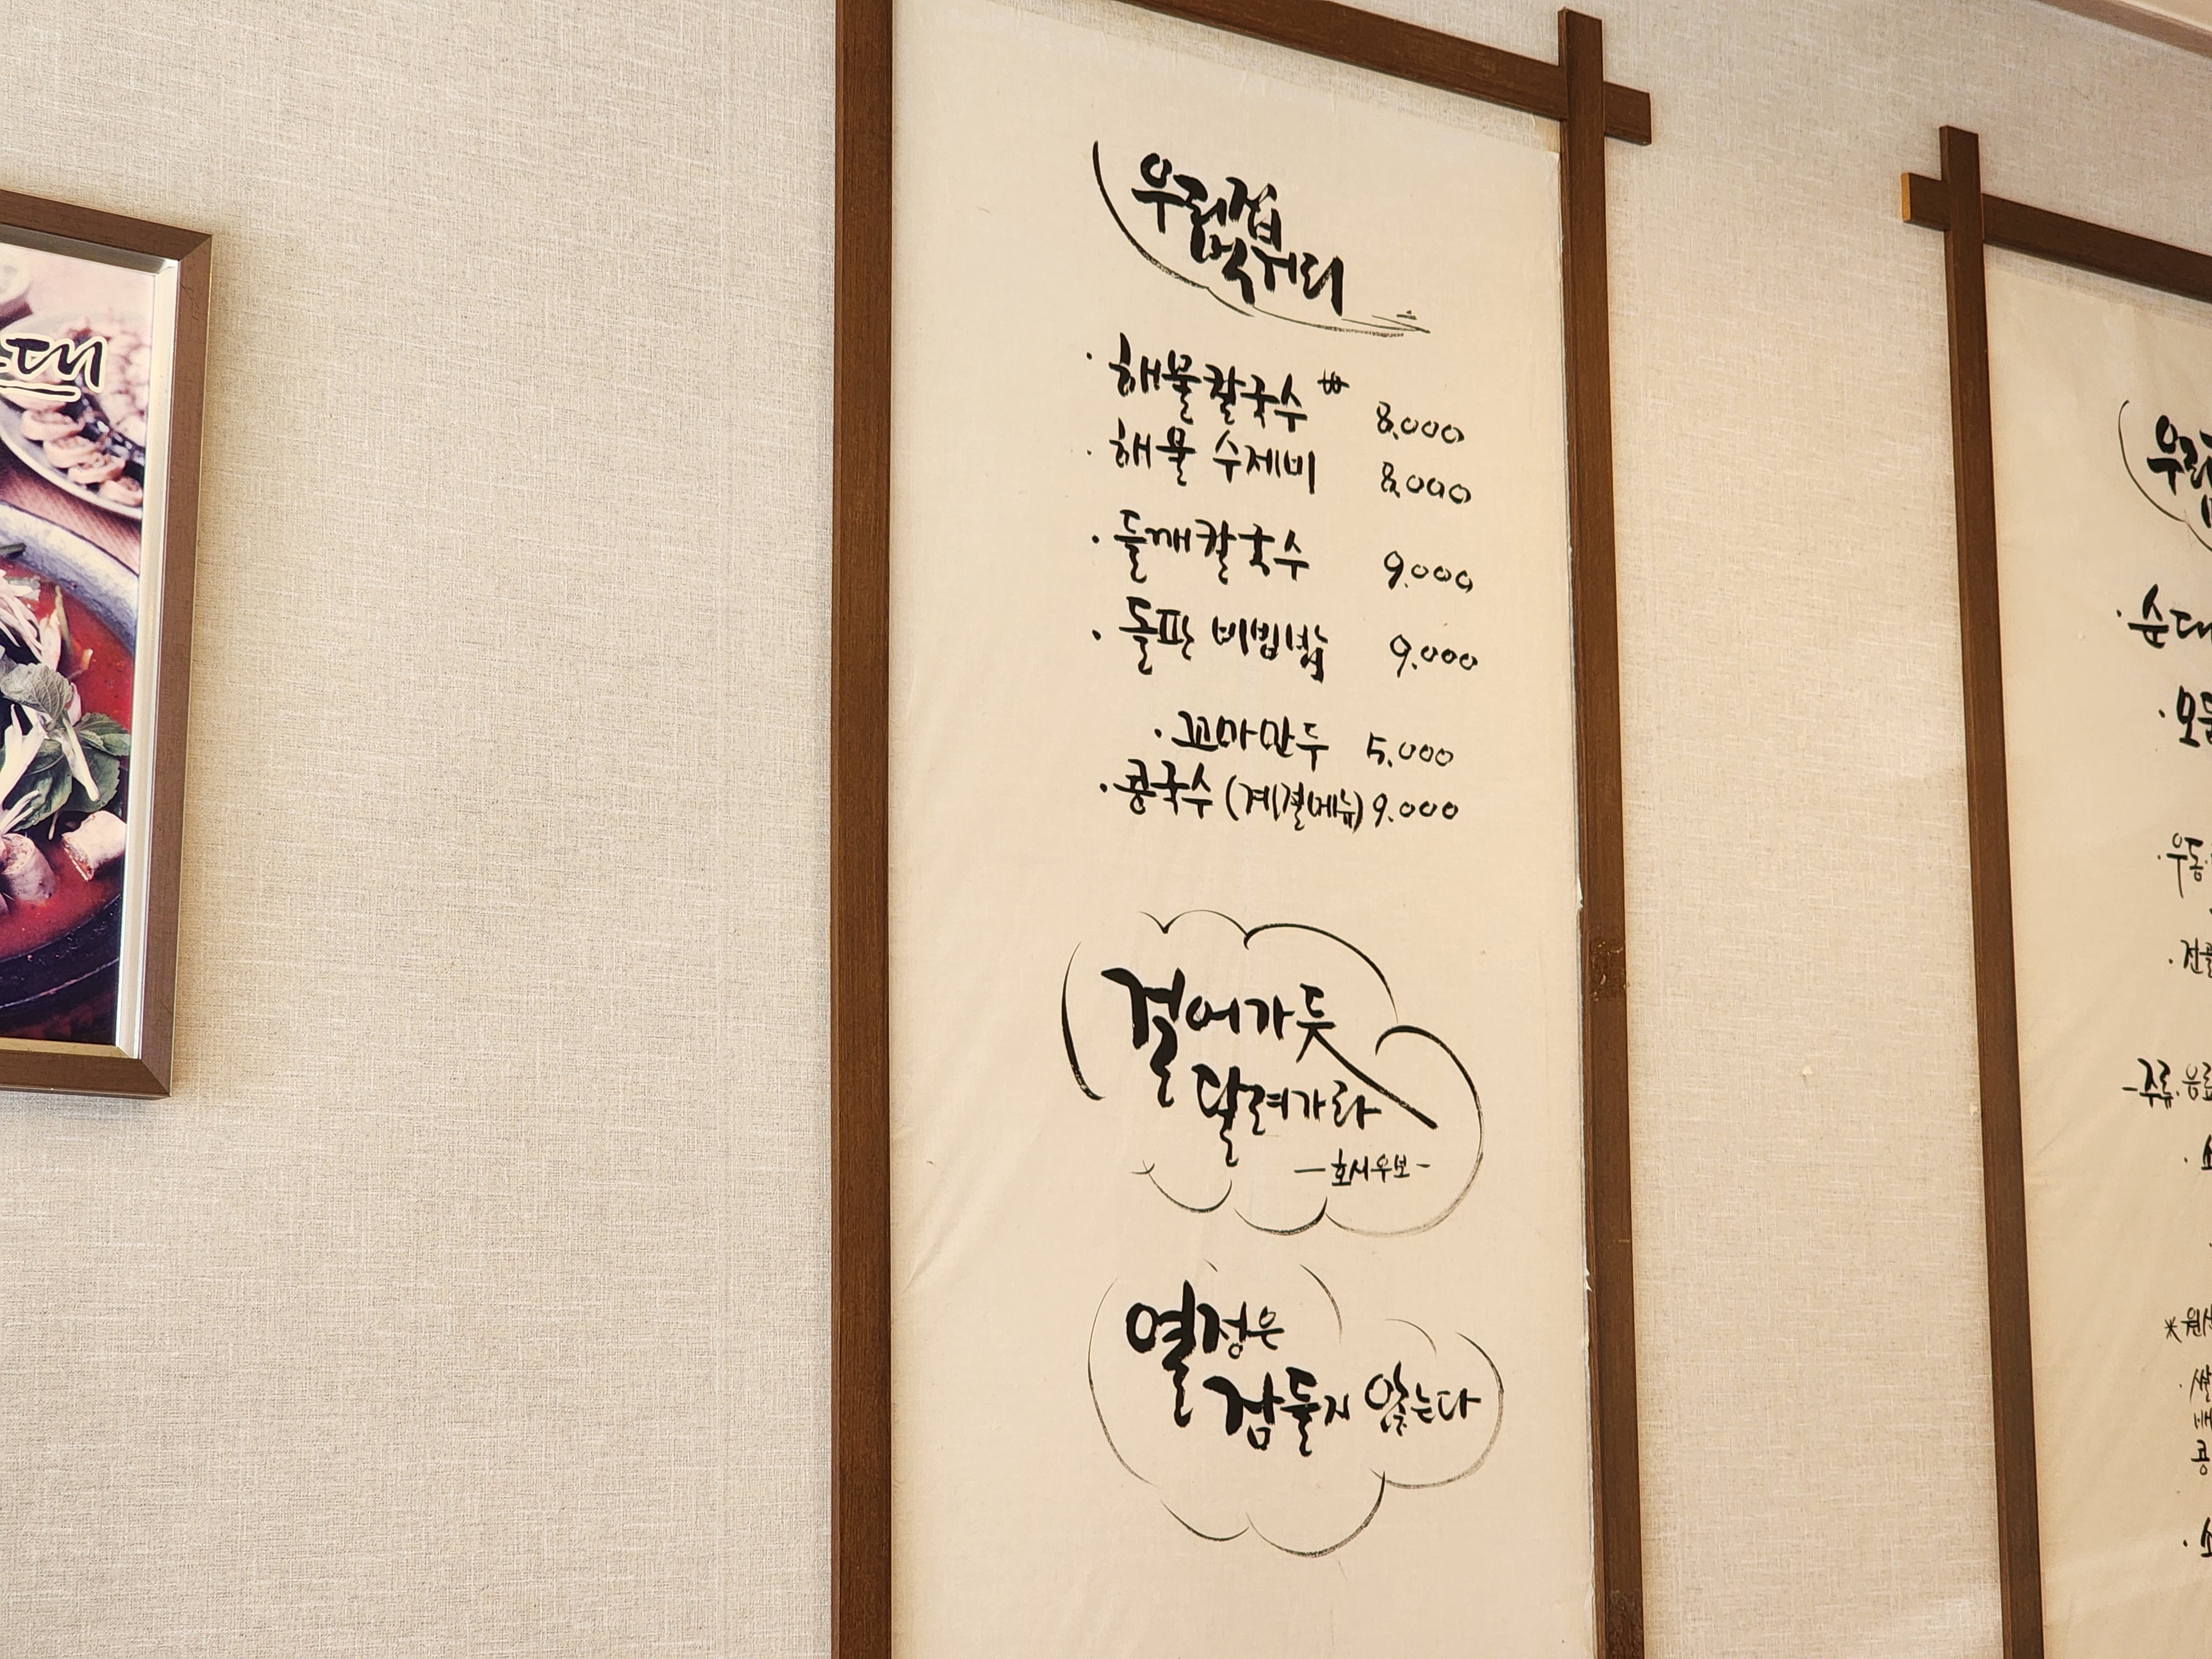 대
우리집
먹거리
· 해물칼국수 ₩ 8,000
· 해물 수제비 8,000
· 들깨칼국수 9,000
· 돌판 비빔밥 9,000
· 꼬마만두 5,000
· 콩국수 (계절메뉴) 9,000
걸어가듯
달려가라
- 호시우보 -
열정은
잠들지 않는다
· 순대
· 우동